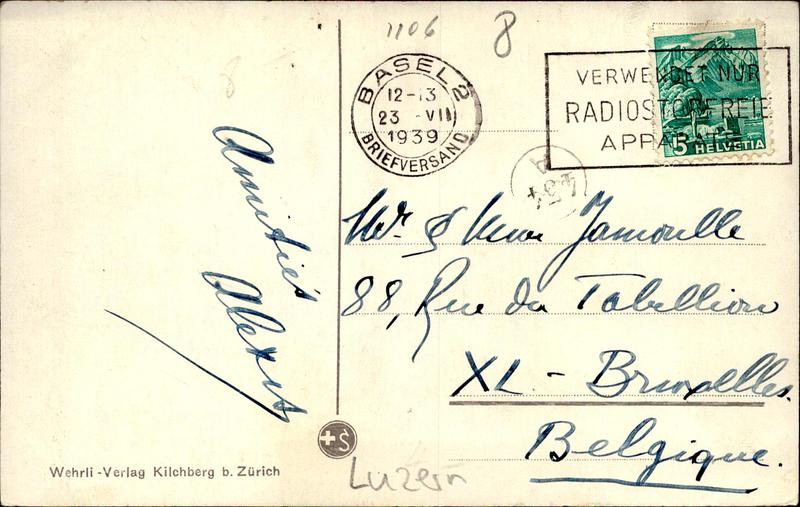 1106
8
BASEL 2
12-13
23 · VII
1939
BRIEFVERSAND
VERWENDET NUR
RADIOSTÖRFREIE
APPARATE
5 HELVETIA
Amitiés
Mr & Mme Jamoulle
88, Rue du Tabellion
XL - Bruxelles.
Belgique.
+ S
Wehrli - Verlag Kilchberg b. Zürich
Luzern